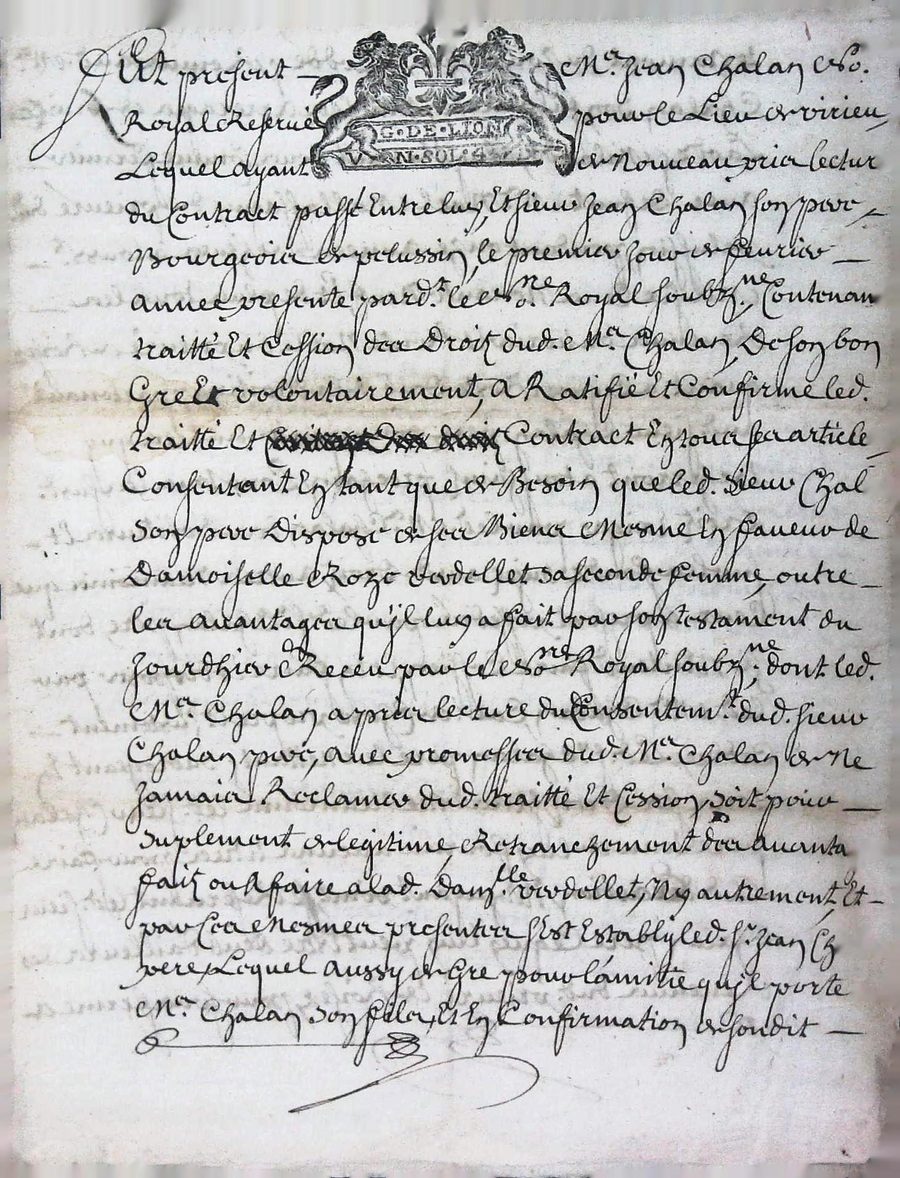 Fut présent — Me. Jean Chalan No.
Royal Reservé pour le Lieu de virieu,
G · DE · LION
V N · SOL · 4
Lequel ayant de Nouveau pris lectur
du Contract passé Entre luy, Et sieur Jean Chalan son pere
Bourgeois de pelussin, le premier Jour de fevrier —
année presente pardt. le No.re Royal soubzné. Contenan
traitté Et Cession des Droitz dud. Me. Chalan, De son bon
Gre Et volontairement, a Ratifié Et Confirmé led.
traitté Et Contract En tous ses article
Consentant En tant que de Besoin que led. sieur Chal
son pere Dispose de ses Biens Mesme En faveur de
Damoiselle Roze verdellet sa seconde femme, outre —
les avantages qu'jl luy a fait par son testament du
Jourdhier Receu par le No.re Royal soubz.né, dont led.
Me. Chalan a pris lecture du Consentemt. dud. sieur
Chalan peré, avec promesses dud. Me. Chalan de Ne
Jamais Reclamer dud. traitté Et Cession, soit pour —
suplement de legitime, Retranchement des avanta
faitz ou A faire a lad. Damlle. verdellet, Ny autrement, Et —
par Ces Mesmes presentes s'Est Estably led. Sr. Jean Ch
pere, Lequel aussy de Gre pour l'amitié qu'jl porte
Me. Chalan son fils, Et En Confirmation de sondit —